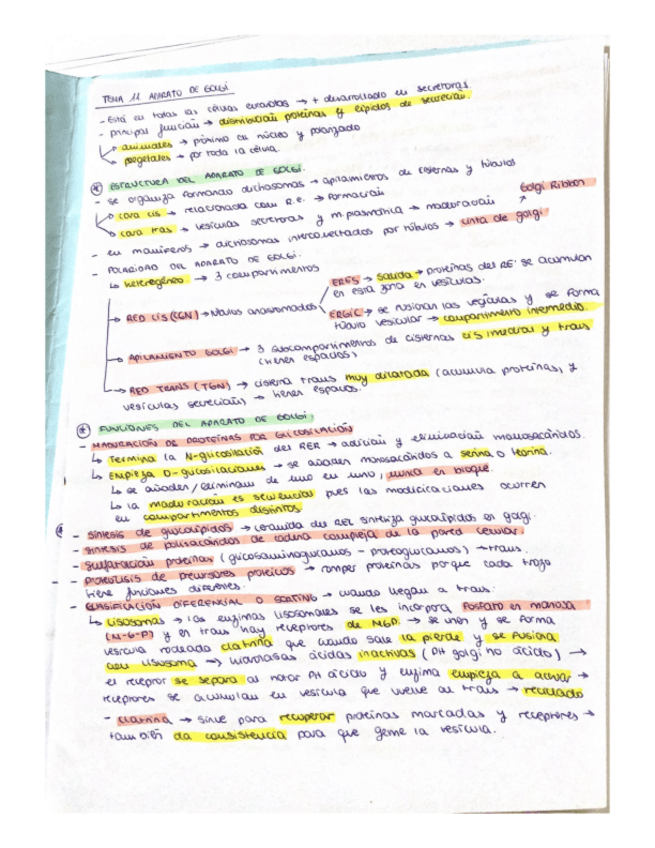 TEMA 11 APARATO DE GOLGI
- Está en todas las células eucariotas → + desarrollado en secretoras.
- principal función → distribución proteínas y lípidos de secreción.
↳ animales → próximo al núcleo y polarizado
↳ vegetales → por toda la célula.
* ESTRUCTURA DEL APARATO DE GOLGI.
- se organiza formando dictiosomas → apilamientos de cisternas y túbulos
↳ cara cis → relacionada con R.E. → formación
↳ cara trans → vesículas secretoras y m.plasmática → maduración
Golgi Ribbon
- en mamíferos → dictiosomas interconectados por túbulos → cinta de golgi
- POLARIDAD DEL APARATO DE GOLGI.
↳ heterogéneo → 3 compartimentos
→ RED CIS (CGN) → túbulos anastomosados
ERES → salida → proteínas del RE se acumulan
en esta zona en vesículas.
ERGIC → se fusionan las vesículas y se forma
túbulo vesicular → compartimento intermedio.
→ APILAMIENTO GOLGI → 3 subcompartimentos de cisternas cis medial y trans
(tienen espacios)
→ RED TRANS (TGN) → cisterna trans muy dilatada (acumula proteínas, y
vesículas secreción) → tienen espacios.
* FUNCIONES DEL APARATO DE GOLGI.
- MADURACIÓN DE PROTEÍNAS POR GLICOSILACIÓN
↳ Termina la N-glicosilación del RER → adición y eliminación monosacáridos.
↳ Empieza O-glicosilaciones → se añaden monosacáridos a serina o teorina.
↳ se añaden/eliminan de uno en uno, nunca en bloque.
↳ la maduración es secuencial pues las modificaciones ocurren
en compartimentos distintos.
* - síntesis de glicolípidos → ceramida del REL sintetiza glucolípidos en golgi.
- síntesis de polisacáridos de cadena compleja de la pared celular.
- sulfatación proteínas (glicosaminoglucanos - proteoglucanos) → trans.
- PROTEÓLISIS de precursores proteicos → romper proteínas porque cada trozo
tiene funciones diferentes.
- CLASIFICACIÓN DIFERENCIAL O SORTING → cuando llegan a trans:
↳ lisosomas → las enzimas lisosomales se les incorpora fosfato en manosa
(M-6-P) y en trans hay receptores de M6P. → se unen y se forma
vesícula rodeada clatrina que cuando sale la pierde y se fusiona
con lisosoma → hidrolasas ácidas inactivas (PH golgi no ácido) →
el receptor se separa al notar PH ácido y enzima empieza a actuar →
receptores se acumulan en vesícula que vuelve al trans → reciclado
- clatrina → sirve para recuperar proteínas marcadas y receptores →
también da consistencia para que geme la vesícula.